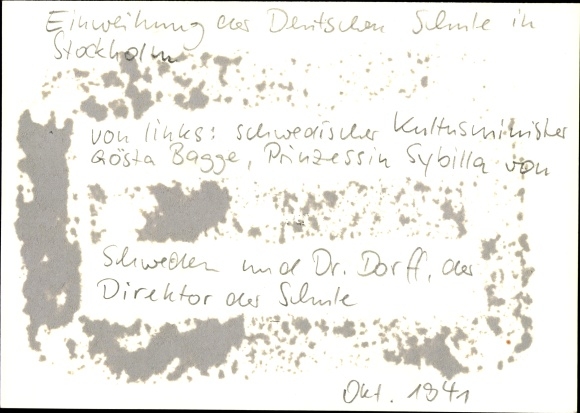 Einweihung der Deutschen Schule in
Stockholm
von links: schwedischer Kultusminister
Gösta Bagge, Prinzessin Sybilla von
Schweden und Dr. Dorff, der
Direktor der Schule
Okt. 1941